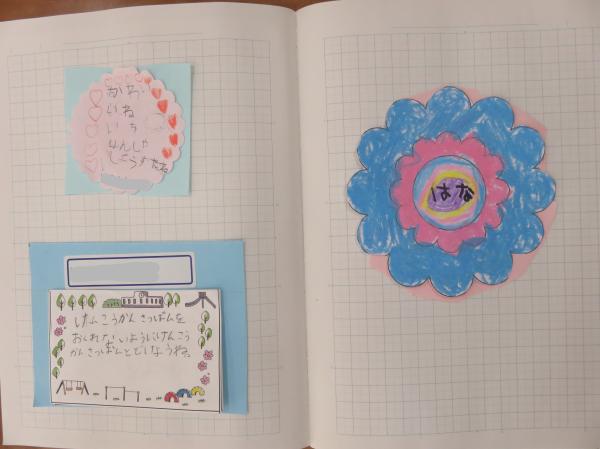 かわ
いね
いち
ねんしゃ
しょうすたね
けんこうかんさつばんを
おくれないようにけんこう
かんさつばんとどけようね。
はな